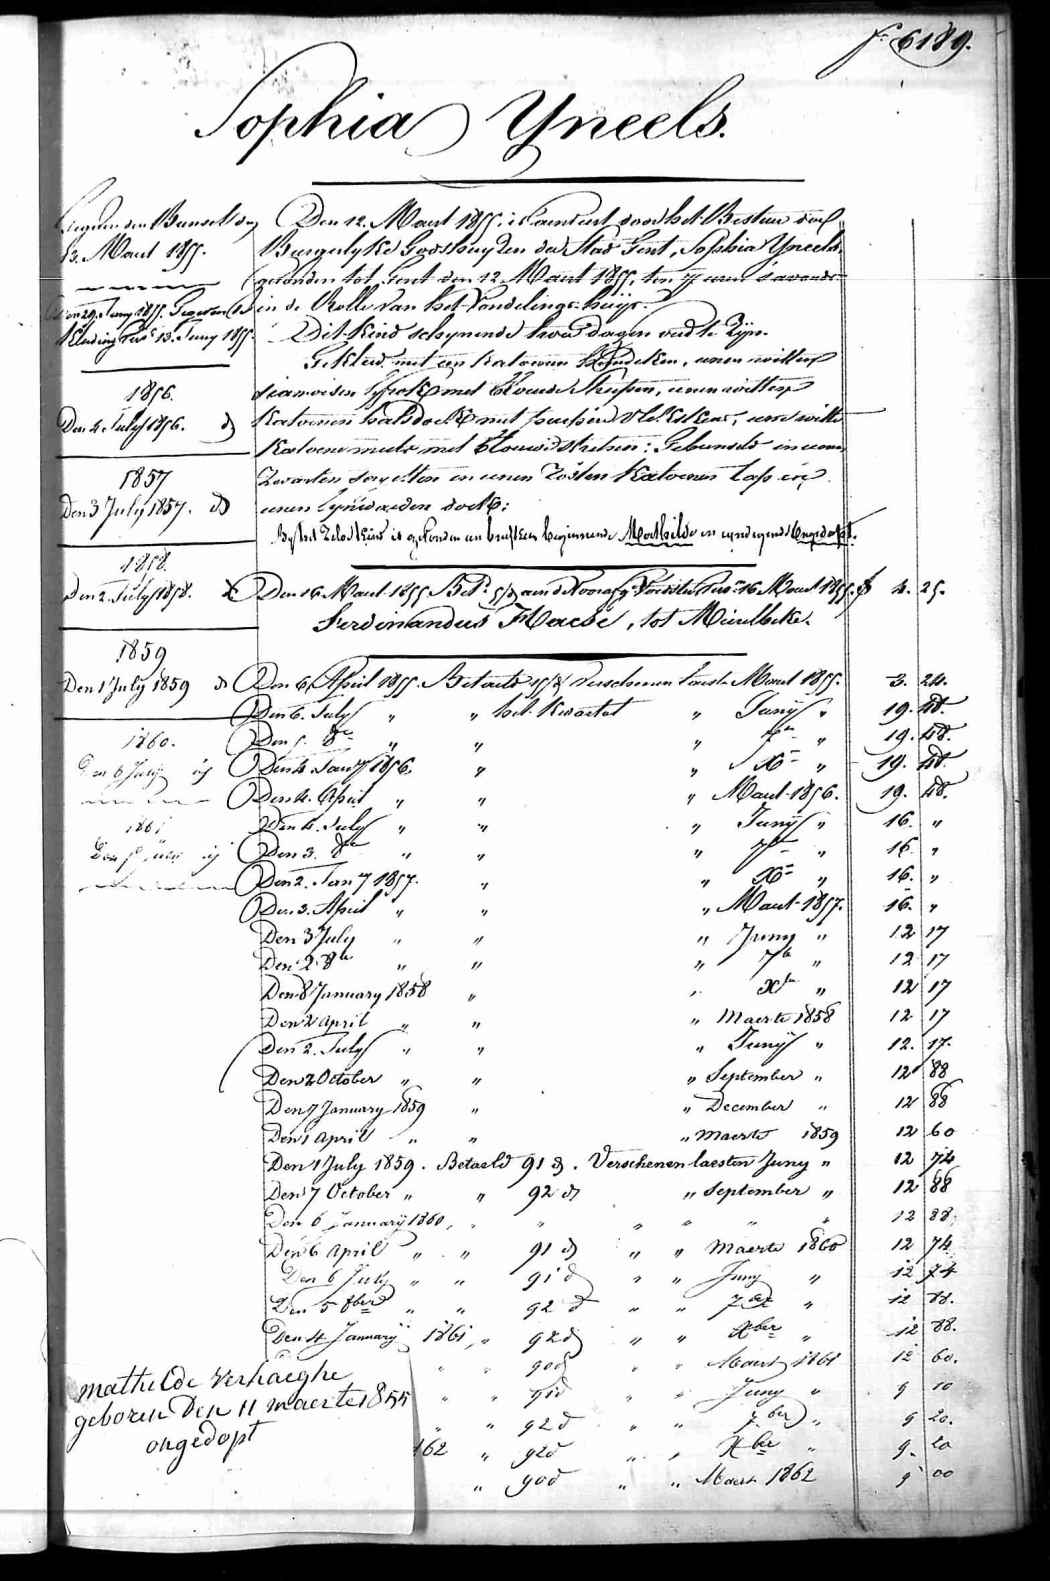 6189.
Sophia Yneels.
13. Maart 1855.
Den 12. Maart 1855. is door het Bestuur der
Burgerlyke Godshuyzen der Stad Gent, Sophia Yneels,
gevonden tot Gent den 12 Maart 1855, ten 7 uren s'avonds
in de Rolle van het Vondelings-huys.
Dit Kind schynende twee dagen oud te Zyn.
Gekleed met een Katoenen hemdeken, eenen witten
siamoisen met blouwe streepen, eenen witten
Katoenen halsdoek met
Katoene muts met blouwe : Gebunseld in eenen
Zwarten en eenen Katoenen
eenen lynwaeden doek:
By het Zelve Kind is gevonden een briefken beginnende Mathilde en eyndigende Ongedopt.
Den 29. Juny 1855.
13. Juny 1855.
1856.
Den 4 July 1856.
1857
Den 3 July 1857.
1858.
Den 2. July 1858.
1859
Den 1 July 1859
1860.
6 July
1861
Den 16. Maart 1855 16 Maart 1855. 4. 25.
Ferdinandus Haese, tot Meirelbeke.
Den 6. April 1855. Betaald Verschenen Maart 1855. 3. 24.
Den 6. July " " het Kwartal " Junij " 19. 48.
Den 5. 8re " " " 7re " 19. 48.
Den 4 Jany 1856. " " Xre " 19. 48.
Den 4. April " " " Maart 1856. 19. 48.
Den 4. July " " " Junij " 16. "
Den 3. 8re " " " 7re " 16. "
Den 2. Jany 1857. " " Xre " 16. "
Den 3. April " " " Maart 1857. 16. "
Den 3 July " " " Juny " 12 17
Den 2 8re " " " 7re " 12 17
Den 8 January 1858 " " Xre " 12 17
Den 2 April " " " Maerte 1858 12 17
Den 2. July " " " Junij " 12. 17.
Den 2 October " " " September " 12 88
Den 7 January 1859 " " December " 12 88
Den 1 April " " " Maerte 1859 12 60
Den 1 July 1859. Betaeld 91 d. Verschenen laesten Juny " 12 74
Den 7 October " " 92 d " September " 12 88
Den 6 Januarij 1860, " " " " " " 12 88.
Den 6 April " " 91 d " " Maerte 1860 12 74
Den 6 July " " 91 d " " Juny " 12 74
Den 5 8ber " " 92 d " " 7ber " 12 88.
Den 4 Januarij 1861 " 92 d " " Xber " 12 88.
" " 90 d " " Maert 1861 12 60.
" " 91 d " " Juny " 9 10
" " 92 d " " 7ber " 9 20.
162 " 92 d " " Xber " 9. 20
" 90 d " " Maert 1862 9 00
mathilde verhaeghe
geboren Den 11 maerte 1855
ongedopt